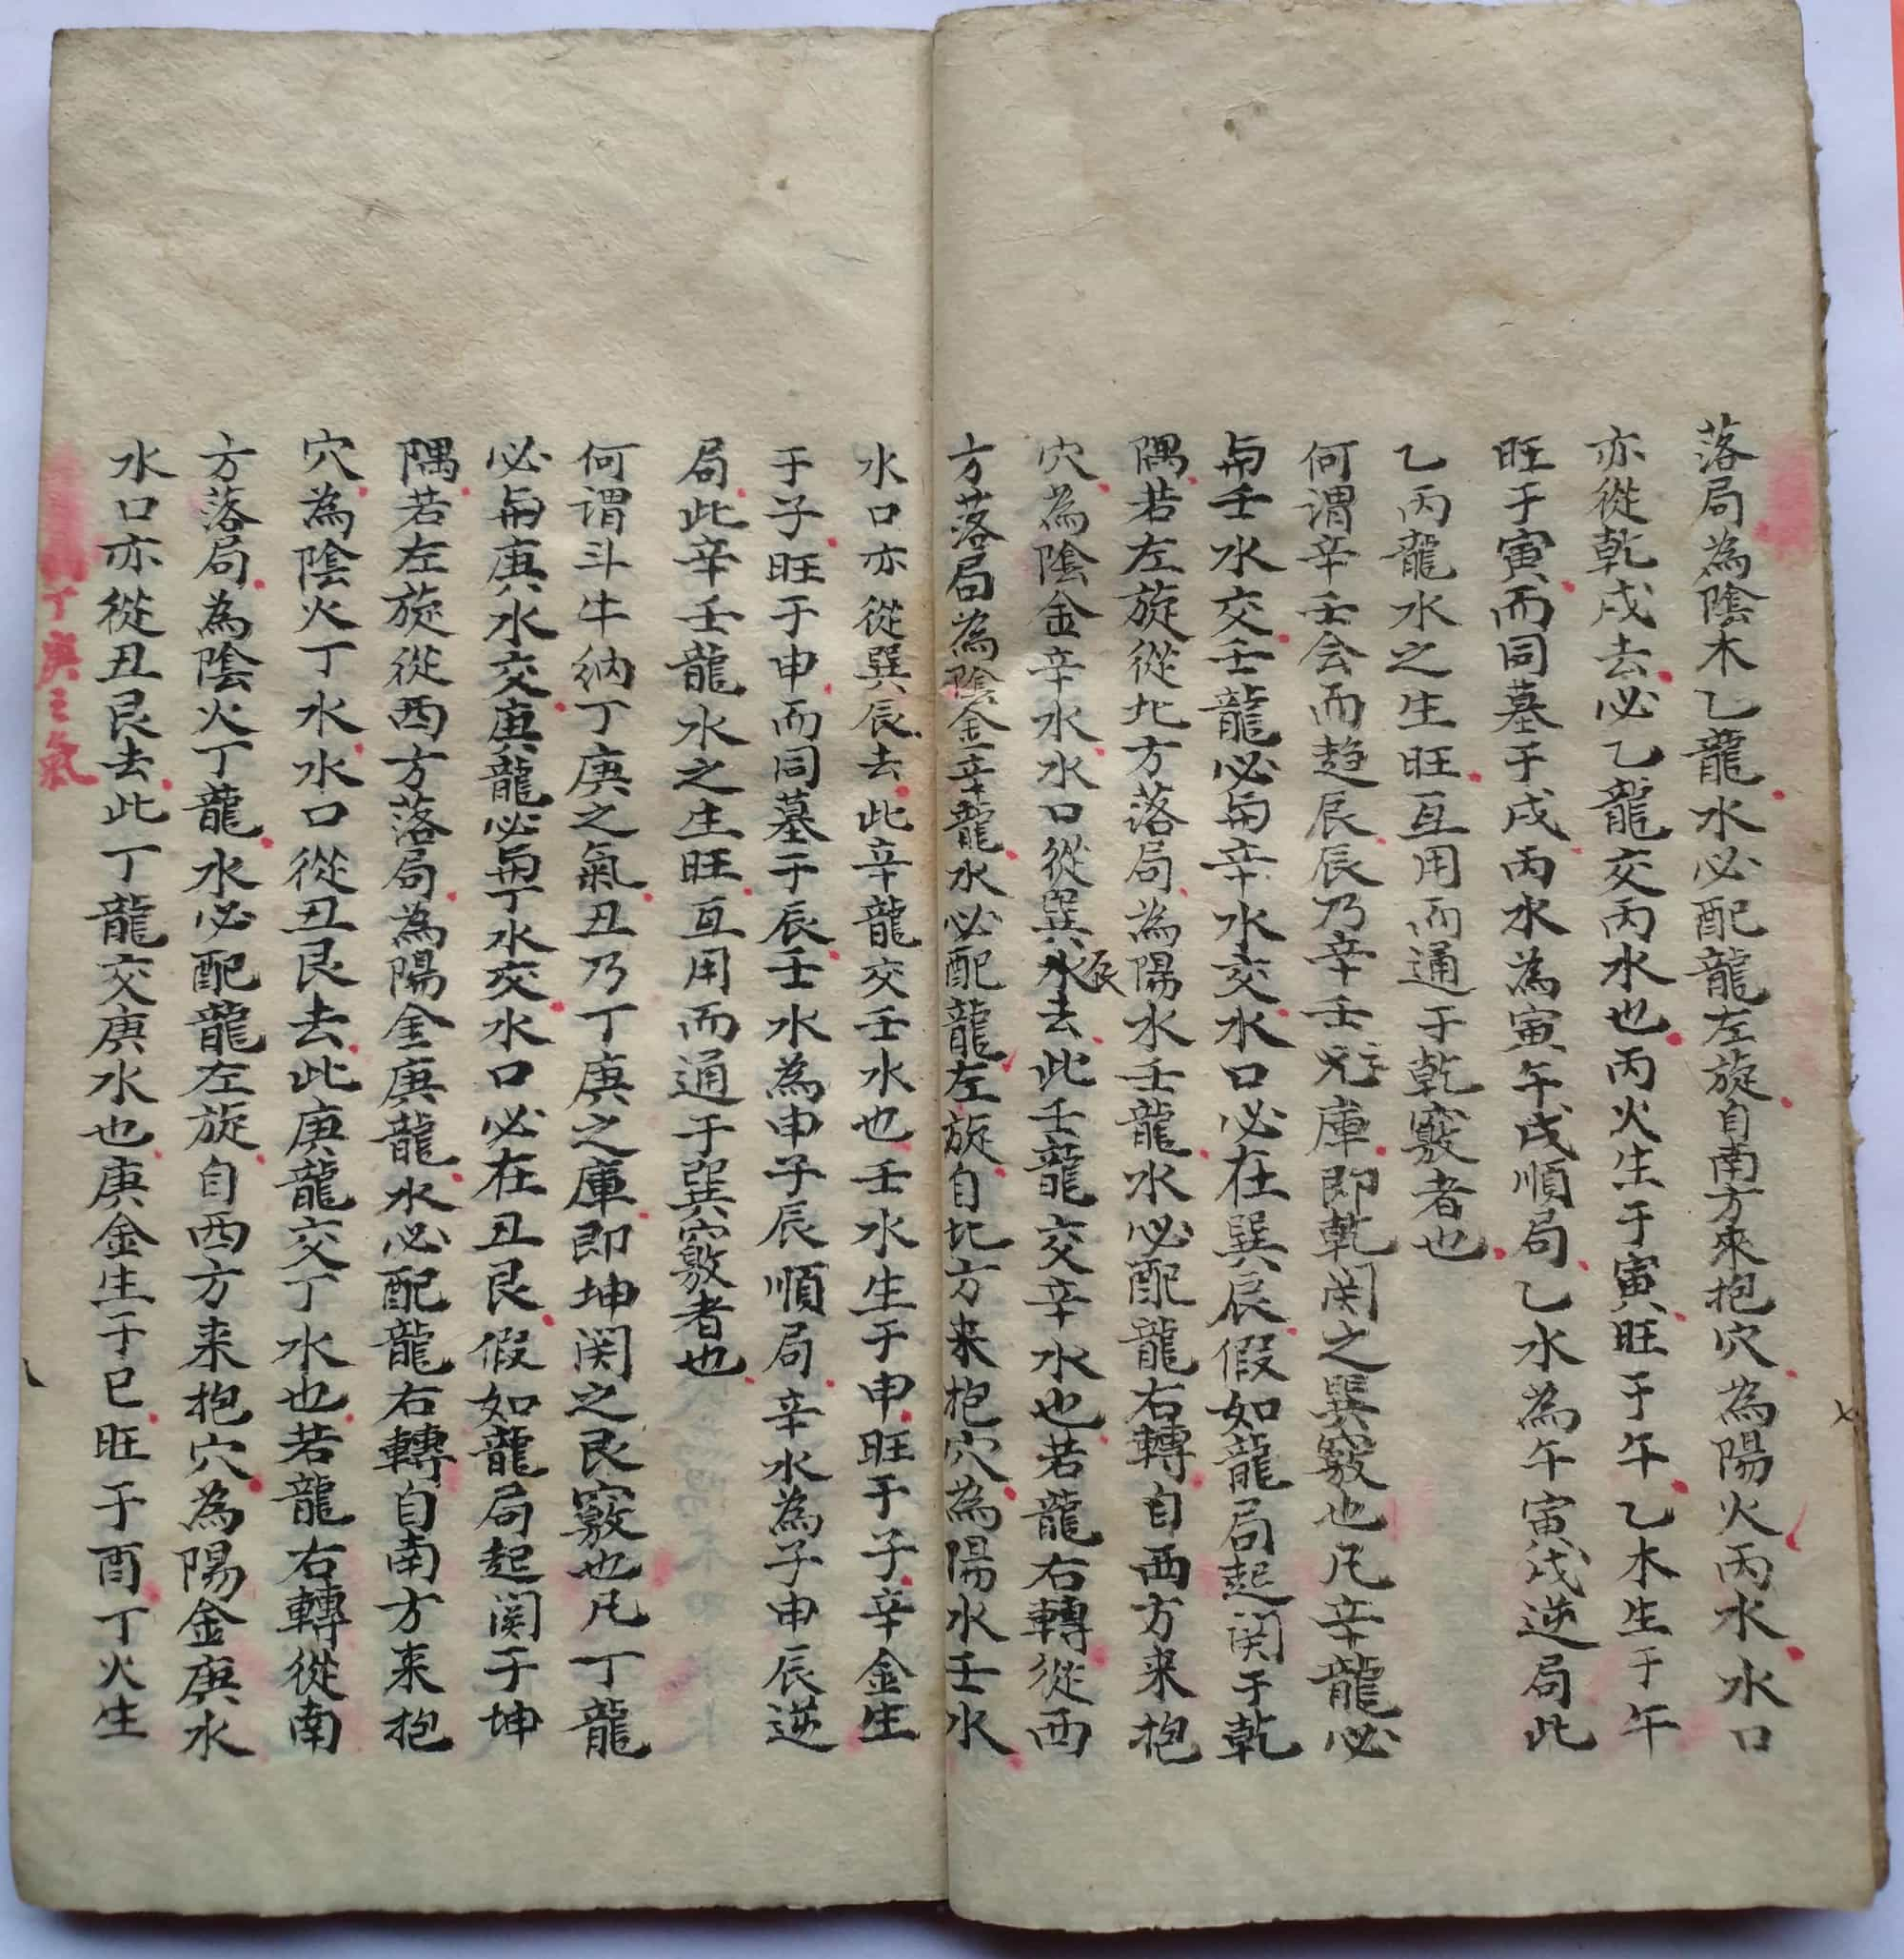 落局為陰木乙龍水必配龍左旋自南方來抱穴為陽火丙水水口
亦從乾戌去必乙龍交丙水也丙火生于寅旺于午乙木生于午
旺于寅而同墓于戌丙水為寅午戌順局乙水為午寅戌逆局此
乙丙龍水之生旺互用而通于乾竅者也
何謂辛壬会而趋辰辰乃辛壬之庫即乾関之巽竅也凡辛龍必
與壬水交壬龍必與辛水交水口必在巽辰假如龍局起関于乾
隅若左旋從北方落局為陽水壬龍水必配龍右轉自西方來抱
穴為陰金辛水水口從巽辰去此壬龍交辛水也若龍右轉從西
方落局為陰金辛龍水必配龍左旋自北方来抱穴為陽水壬水
水口亦從巽辰去此辛龍交壬水也壬水生于申旺于子辛金生
于子旺于申而同墓于辰壬水為申子辰順局辛水為子申辰逆
局此辛壬龍水之生旺互用而通于巽竅者也
何謂斗牛納丁庚之氣丑乃丁庚之庫即坤関之艮竅也凡丁龍
必與庚水交庚龍必與丁水交水口必在丑艮假如龍局起関于坤
隅若左旋從西方落局為陽金庚龍水必配龍右轉自南方来抱
穴為陰火丁水水口從丑艮去此庚龍交丁水也若龍右轉從南
方落局為陰火丁龍水必配龍左旋自西方来抱穴為陽金庚水
水口亦從丑艮去此丁龍交庚水也庚金生于巳旺于酉丁火生
丁庚之氣